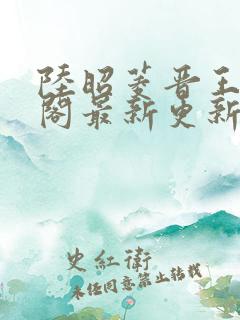 陸昭菱晋王
閣最新更新
史紅衛
未经同意禁止转载